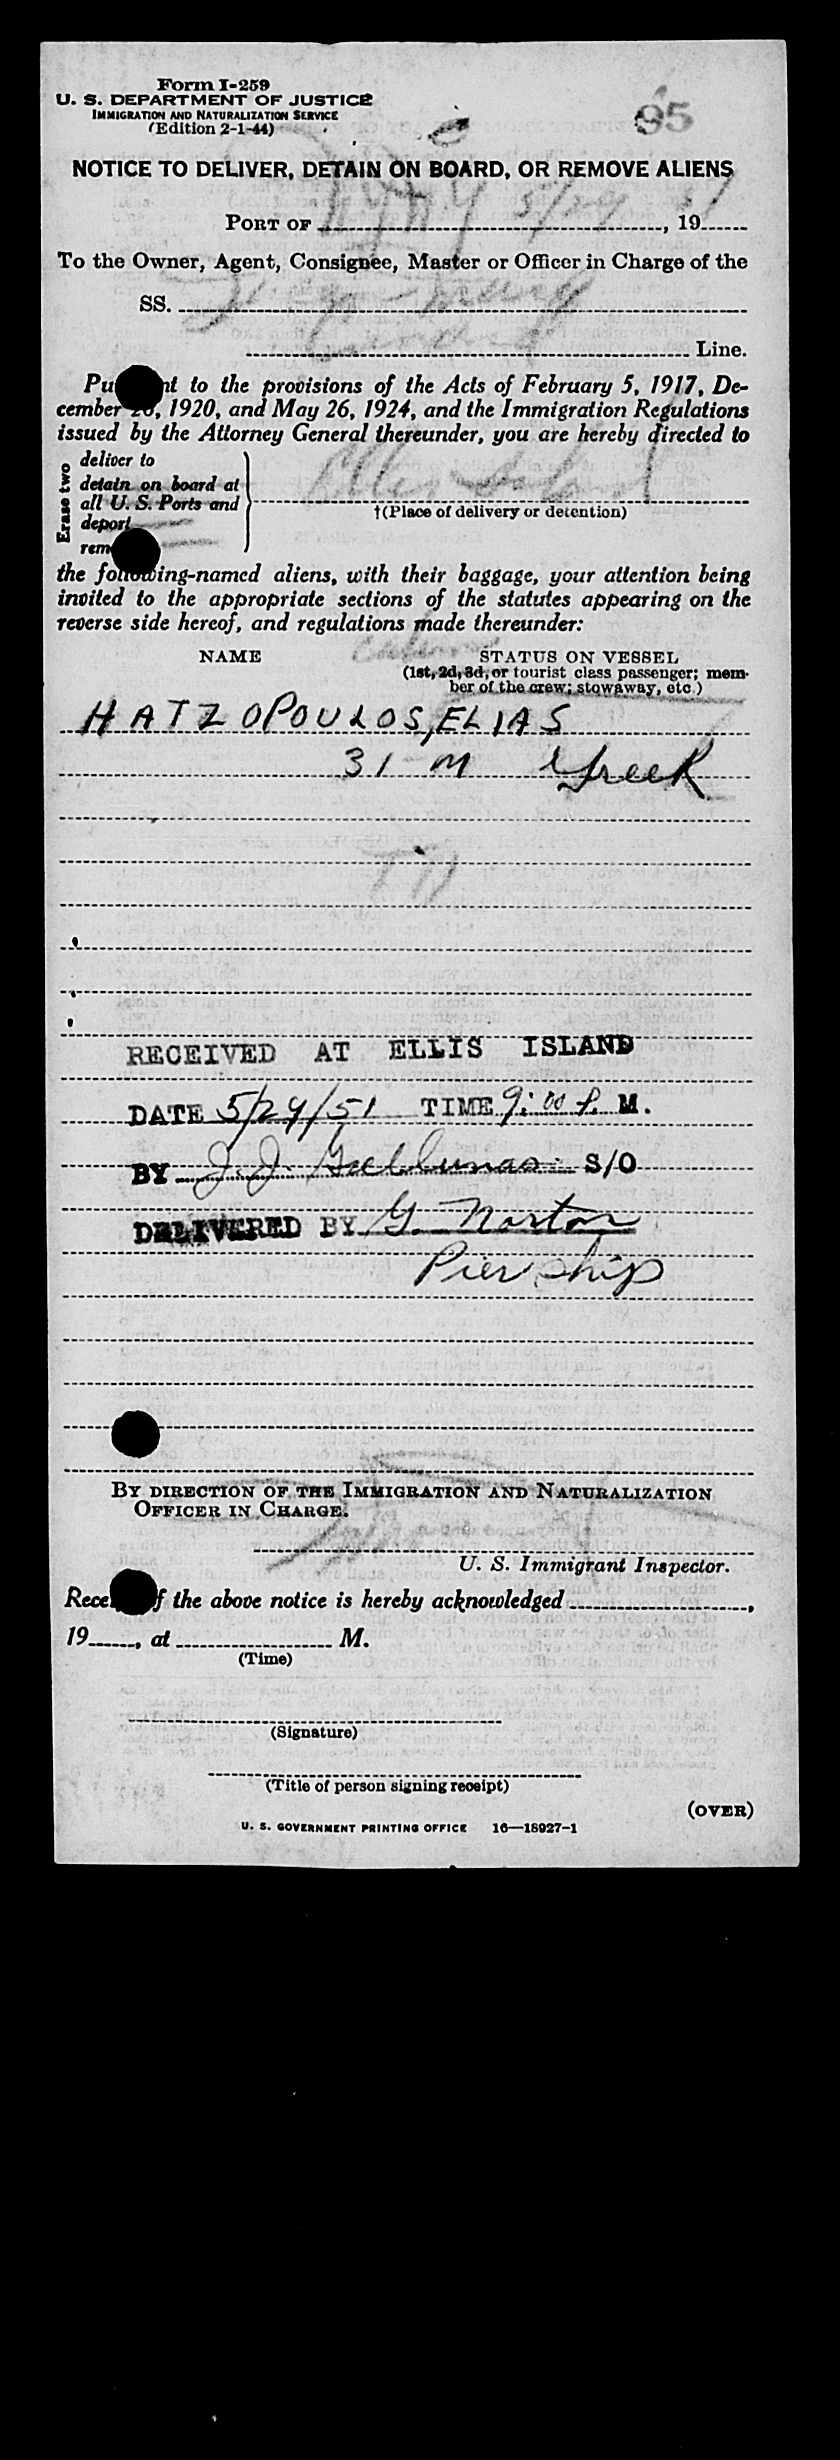 Form I-259
U. S. DEPARTMENT OF JUSTICE
IMMIGRATION AND NATURALIZATION SERVICE
(Edition 2-1-44)
95
NOTICE TO DELIVER, DETAIN ON BOARD, OR REMOVE ALIENS
PORT OF NYNY 5/29, 19 51
To the Owner, Agent, Consignee, Master or Officer in Charge of the
SS. Q Mary
Cunard Line.
Pu nt to the provisions of the Acts of February 5, 1917, De-
cember 26, 1920, and May 26, 1924, and the Immigration Regulations
issued by the Attorney General thereunder, you are hereby directed to
Erase two
deliver to
detain on board at
all U. S. Ports and
deport
rem
Ellis Island
†(Place of delivery or detention)
the following-named aliens, with their baggage, your attention being
invited to the appropriate sections of the statutes appearing on the
reverse side hereof, and regulations made thereunder:
NAME
cabin
STATUS ON VESSEL
(1st, 2d, 3d, or tourist class passenger; mem-
ber of the crew; stowaway, etc.)
HATZOPOULOS, ELIAS
31 M Greek
RECEIVED AT ELLIS ISLAND
DATE 5/29/51 TIME 9:00 P. M.
BY J. J. S/O
DELIVERED BY G. Norton
Pier ship
BY DIRECTION OF THE IMMIGRATION AND NATURALIZATION
OFFICER IN CHARGE.
U. S. Immigrant Inspector.
Rece f the above notice is hereby acknowledged ,
19 , at M.
(Time)
(Signature)
(Title of person signing receipt)
(OVER)
U. S. GOVERNMENT PRINTING OFFICE 16—18927-1